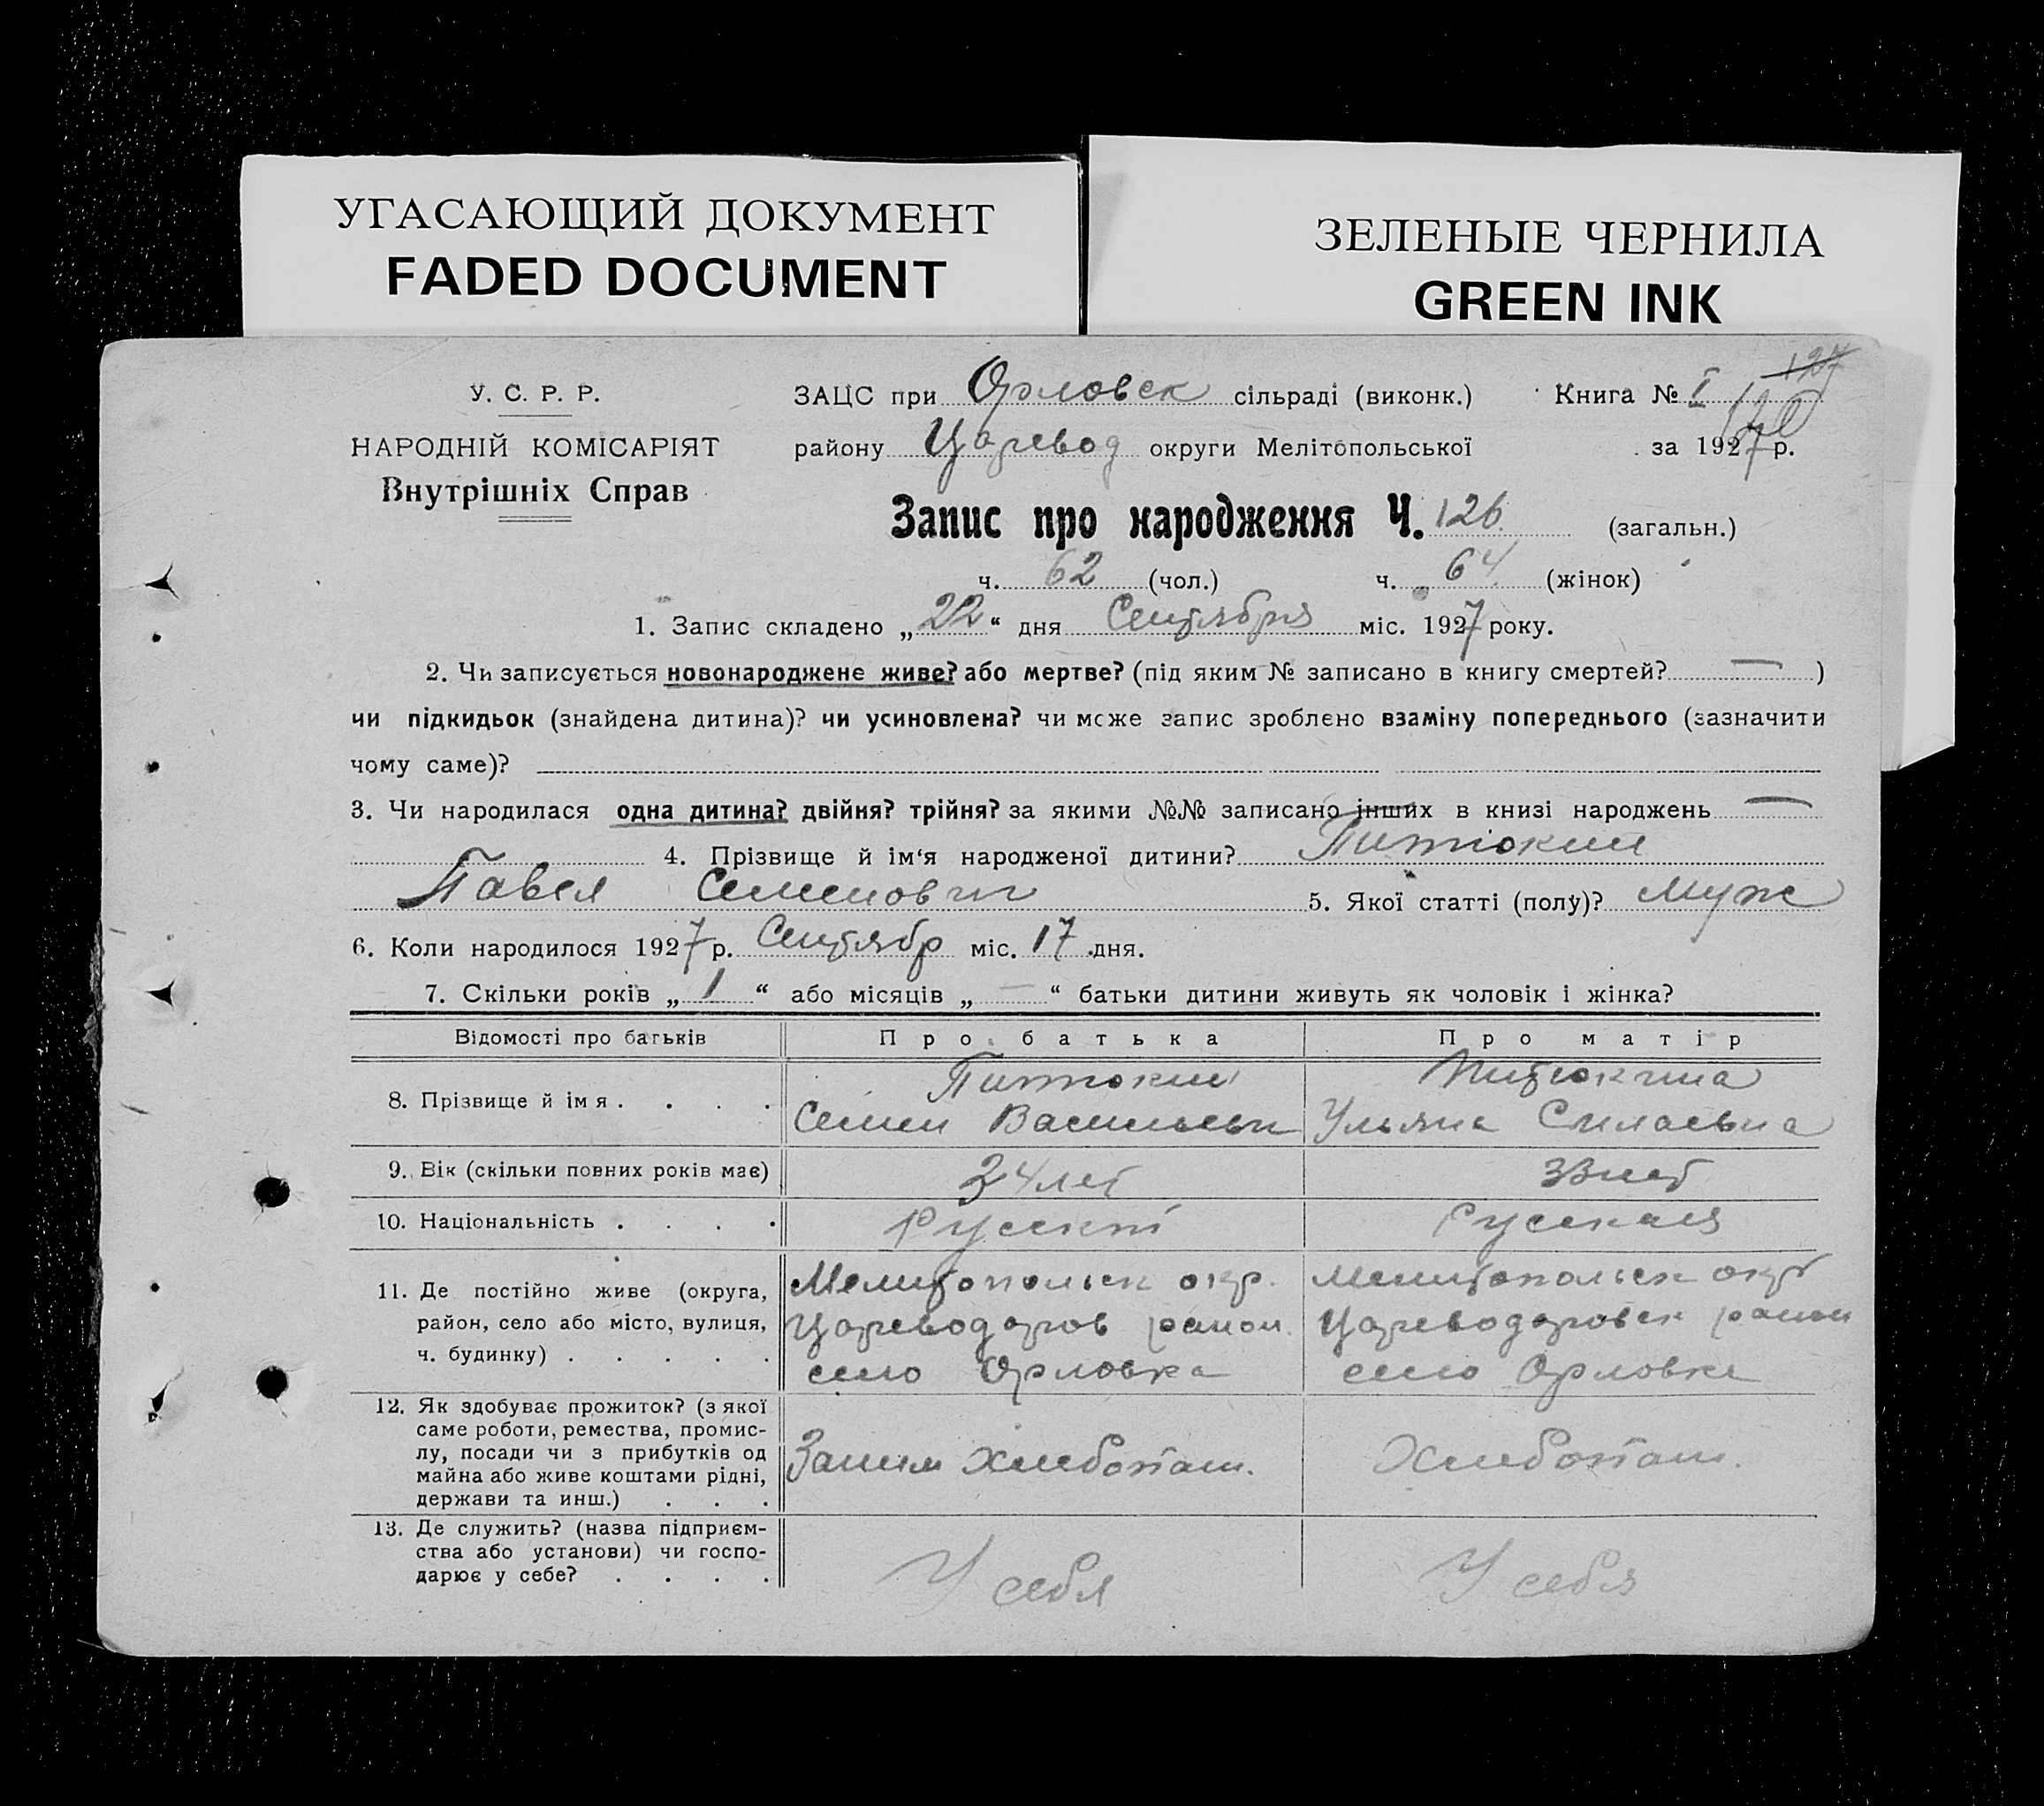 УГАСАЮЩИЙ ДОКУМЕНТ
FADED DOCUMENT
ЗЕЛЕНЫЕ ЧЕРНИЛА
GREEN INK
127
У. С. Р. Р.
НАРОДНІЙ КОМІСАРІЯТ
Внутрішніх Справ
ЗАЦС при Орловск сільраді (виконк.) Книга № I
району Царевод округи Мелітопольської за 1927 р.
Запис про народження Ч. 126 (загальн.)
ч. 62 (чол.) ч. 64 (жінок)
1. Запис складено „22“ дня Сентября міс. 1927 року.
2. Чи записується новонароджене живе? або мертве? (під яким № записано в книгу смертей? — )
чи підкидьок (знайдена дитина)? чи усиновлена? чи може запис зроблено взаміну попереднього (зазначити
чому саме)?
3. Чи народилася одна дитина? двійня? трійня? за якими №№ записано інших в книзі народжень —
4. Прізвище й ім‘я народженої дитини? Питюкин
Павел Семенович 5. Якої статті (полу)? Муж
6. Коли народилося 1927 р. Сентябр міс. 17 дня.
7. Скільки років „1“ або місяців „—“ батьки дитини живуть як чоловік і жінка?
Відомості про батьків Про батька Про матір
8. Прізвище й імя . . . . Питюкин Питюкина
Семен Васильевич Ульяна Силаевна
9. Вік (скільки повних років має) 34 лет 33 лет
10. Національність . . . . Русский Русская
11. Де постійно живе (округа, Мелитопольск окр. Мелитопольск окр
район, село або місто, вулиця, Цареводаров район. Цареводаровск район
ч. будинку) . . . . . село Орловка село Орловка
12. Як здобуває прожиток? (з якої
саме роботи, ремества, промис-
лу, посади чи з прибутків од
майна або живе коштами рідні,
держави та инш.) . . .
Заним Хлебопаш. Хлебопаш.
13. Де служить? (назва підприєм-
ства або установи) чи госпо-
дарює у себе? . . . .
У себя У себя